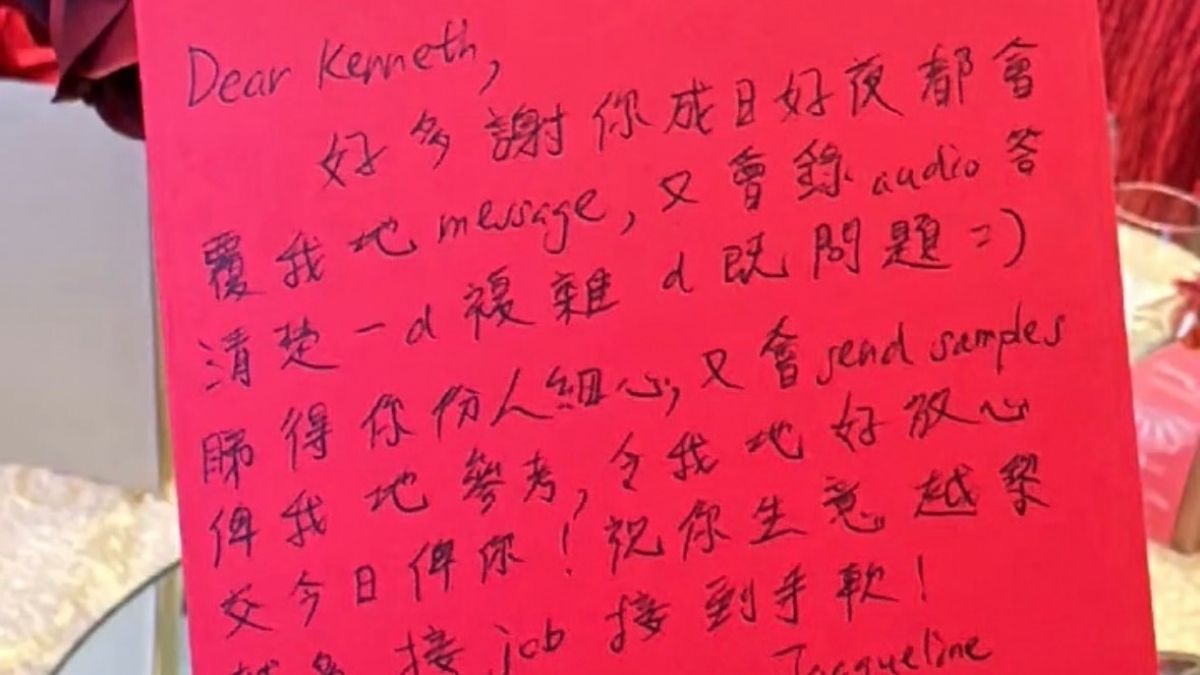 Dear Kenneth,
好多謝你成日好夜都會
覆我地message,又會錄audio答
清楚一d複雜d既問題=)
睇得你份人細心,又會send samples
俾我地參考,令我地好放心
交今日俾你!祝你生意越黎
越多 接job接到手軟!
Jacqueline